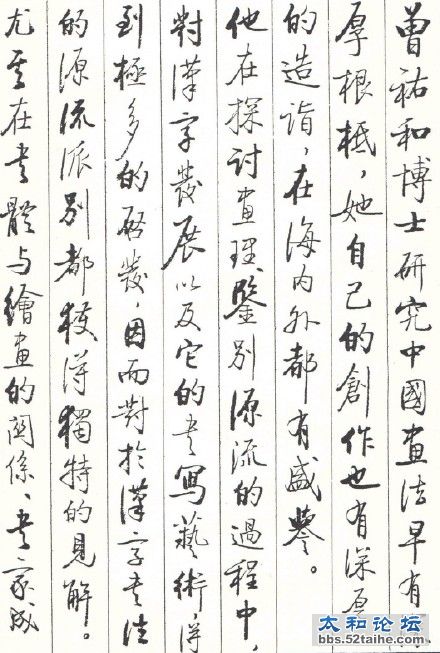 曾祐和博士研究中國畫法早有
厚根柢，她自己的創作也有深厚
的造詣，在海内外都有盛譽。
他在探討畫理、鑒別源流的過程中，
對漢字發展以及它的書寫藝術，得
到極多的啓發，因而對於漢字書法
的源流派別都獲得獨特的見解。
尤其在書體与繪畫的関係、書家成
太和论坛
bbs.52taihe.com